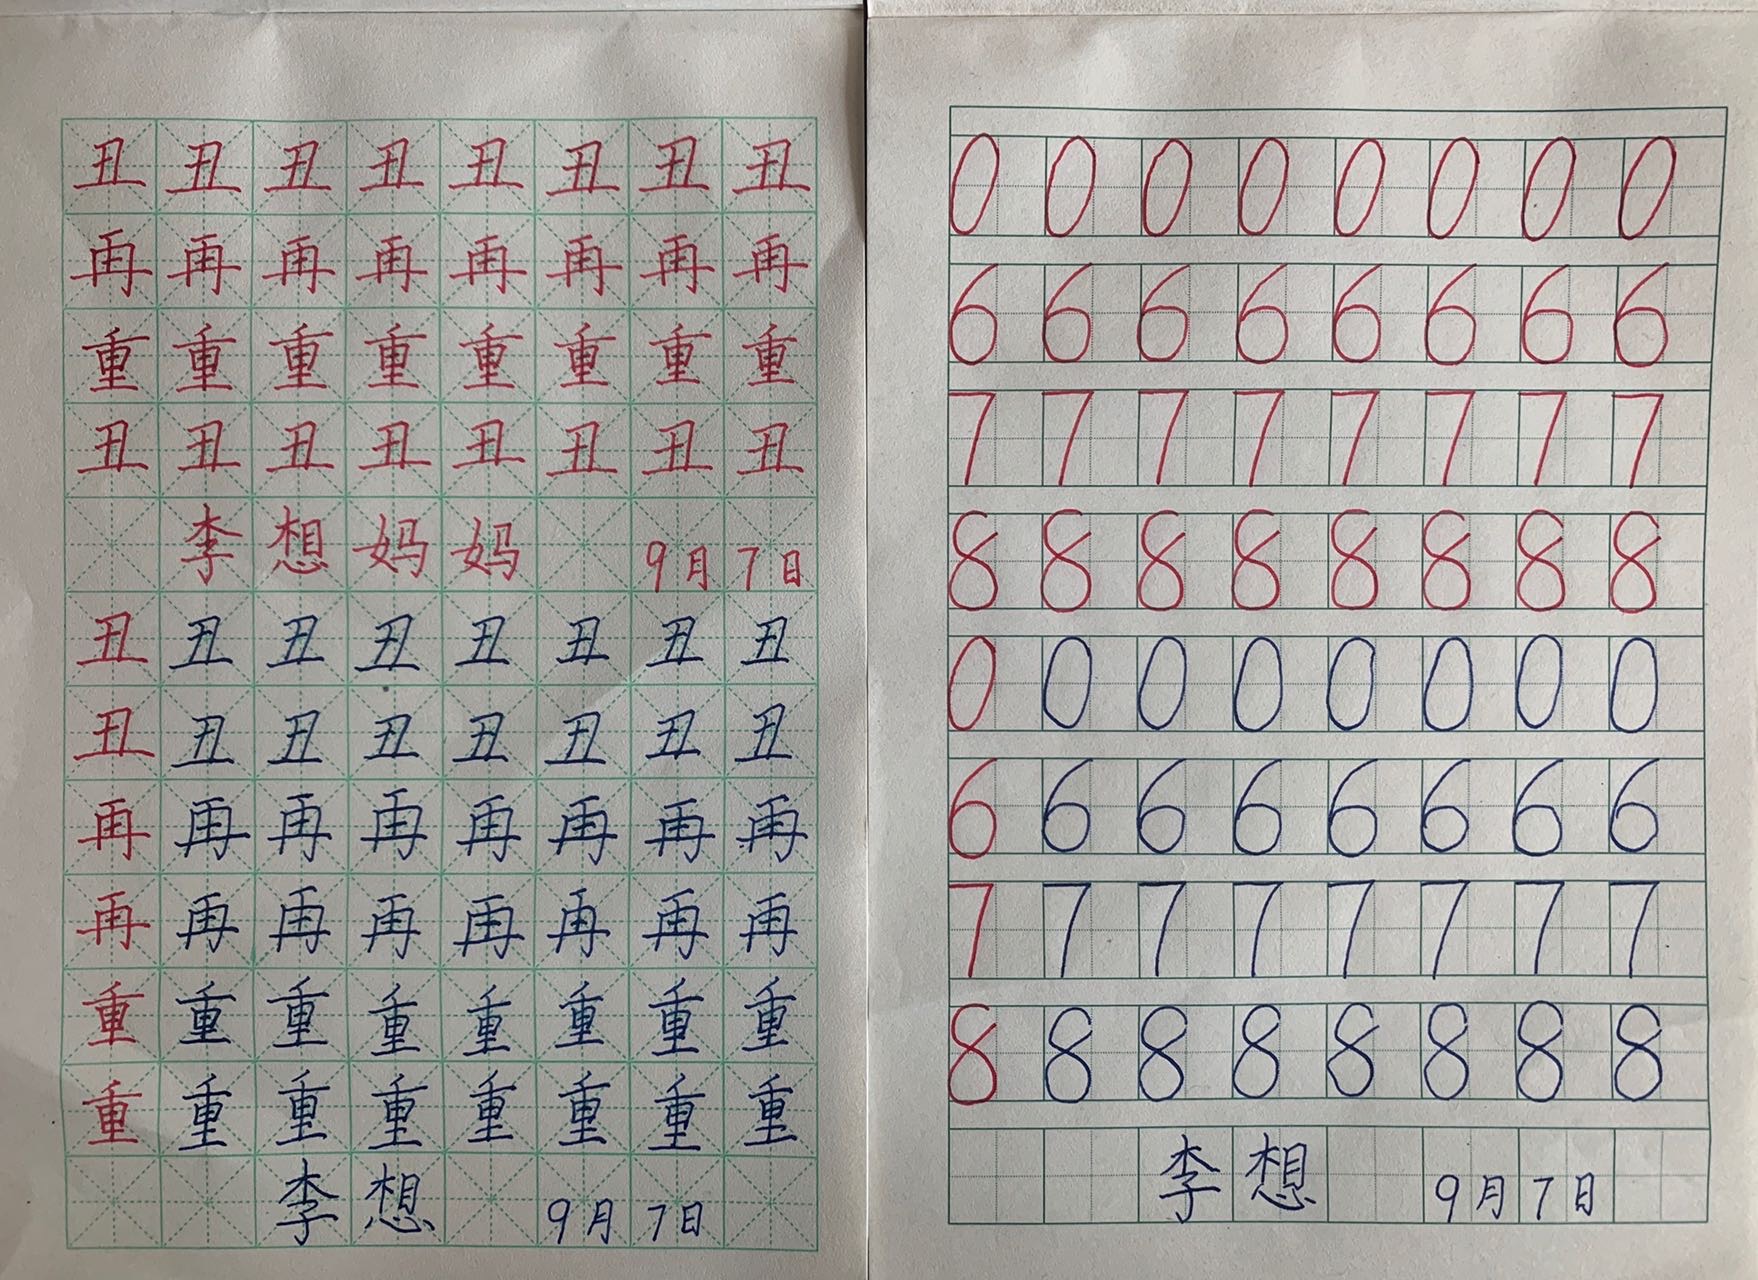 丑丑丑丑丑丑丑丑
再再再再再再再再
重重重重重重重重
丑丑丑丑丑丑丑丑
李想妈妈 9月7日
丑丑丑丑丑丑丑丑
丑丑丑丑丑丑丑丑
再再再再再再再再
再再再再再再再再
重重重重重重重重
重重重重重重重重
李想 9月7日
0 0 0 0 0 0 0 0
6 6 6 6 6 6 6 6
7 7 7 7 7 7 7 7
8 8 8 8 8 8 8 8
0 0 0 0 0 0 0 0
6 6 6 6 6 6 6 6
7 7 7 7 7 7 7 7
8 8 8 8 8 8 8 8
李想 9月7日